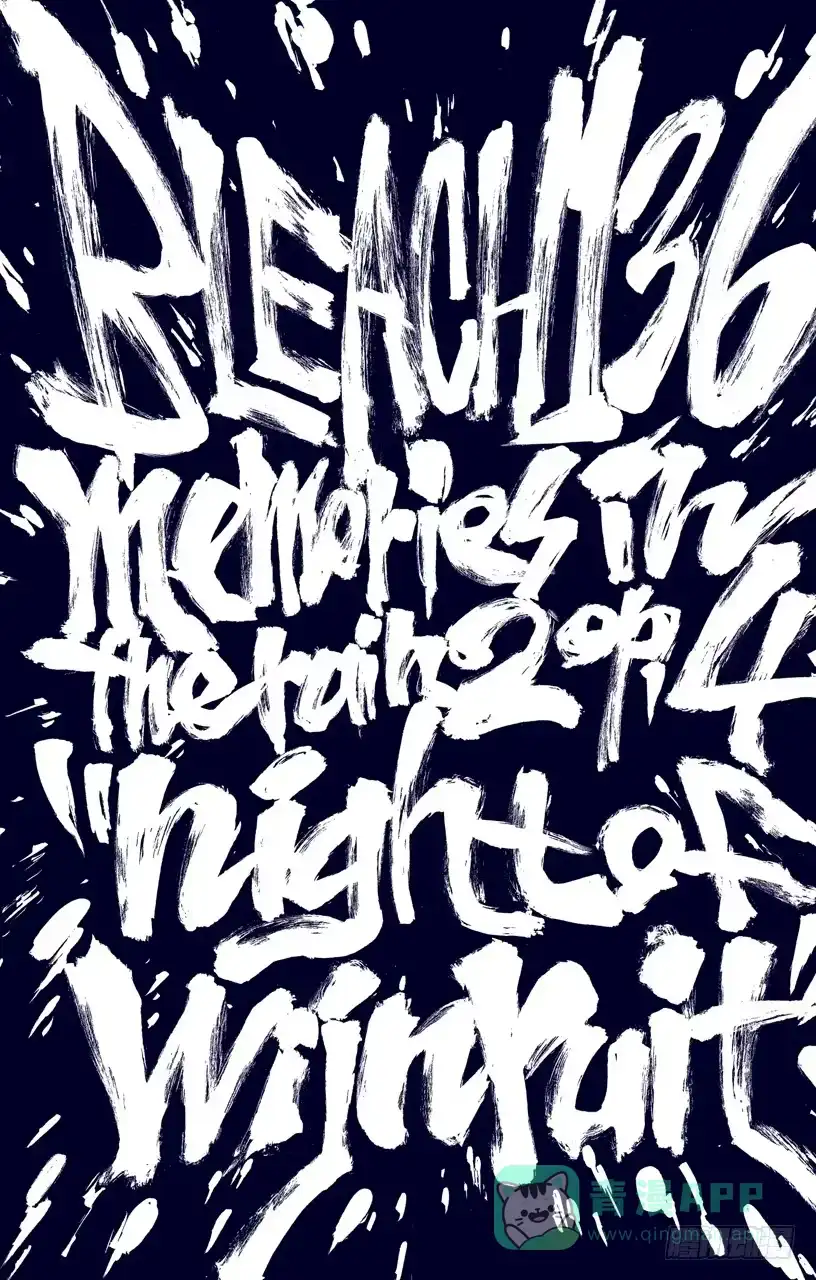 BLEACH 136
memories in
the rain 2 op. 4
"night of
wijnruit"
青漫APP
www.qingman.app